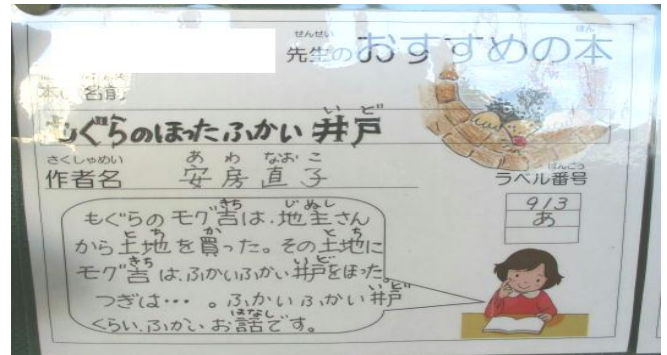 先生のおすすめの本
本の名前
もぐらのほったふかい井戸
作者名 安房直子
ラベル番号
913
あ
もぐらのモグ吉は、地主さん
から土地を買った。その土地に
モグ吉は、ふかいふかい井戸をほった。
つぎは…。ふかいふかい井戸
くらい、ふかい お話です。